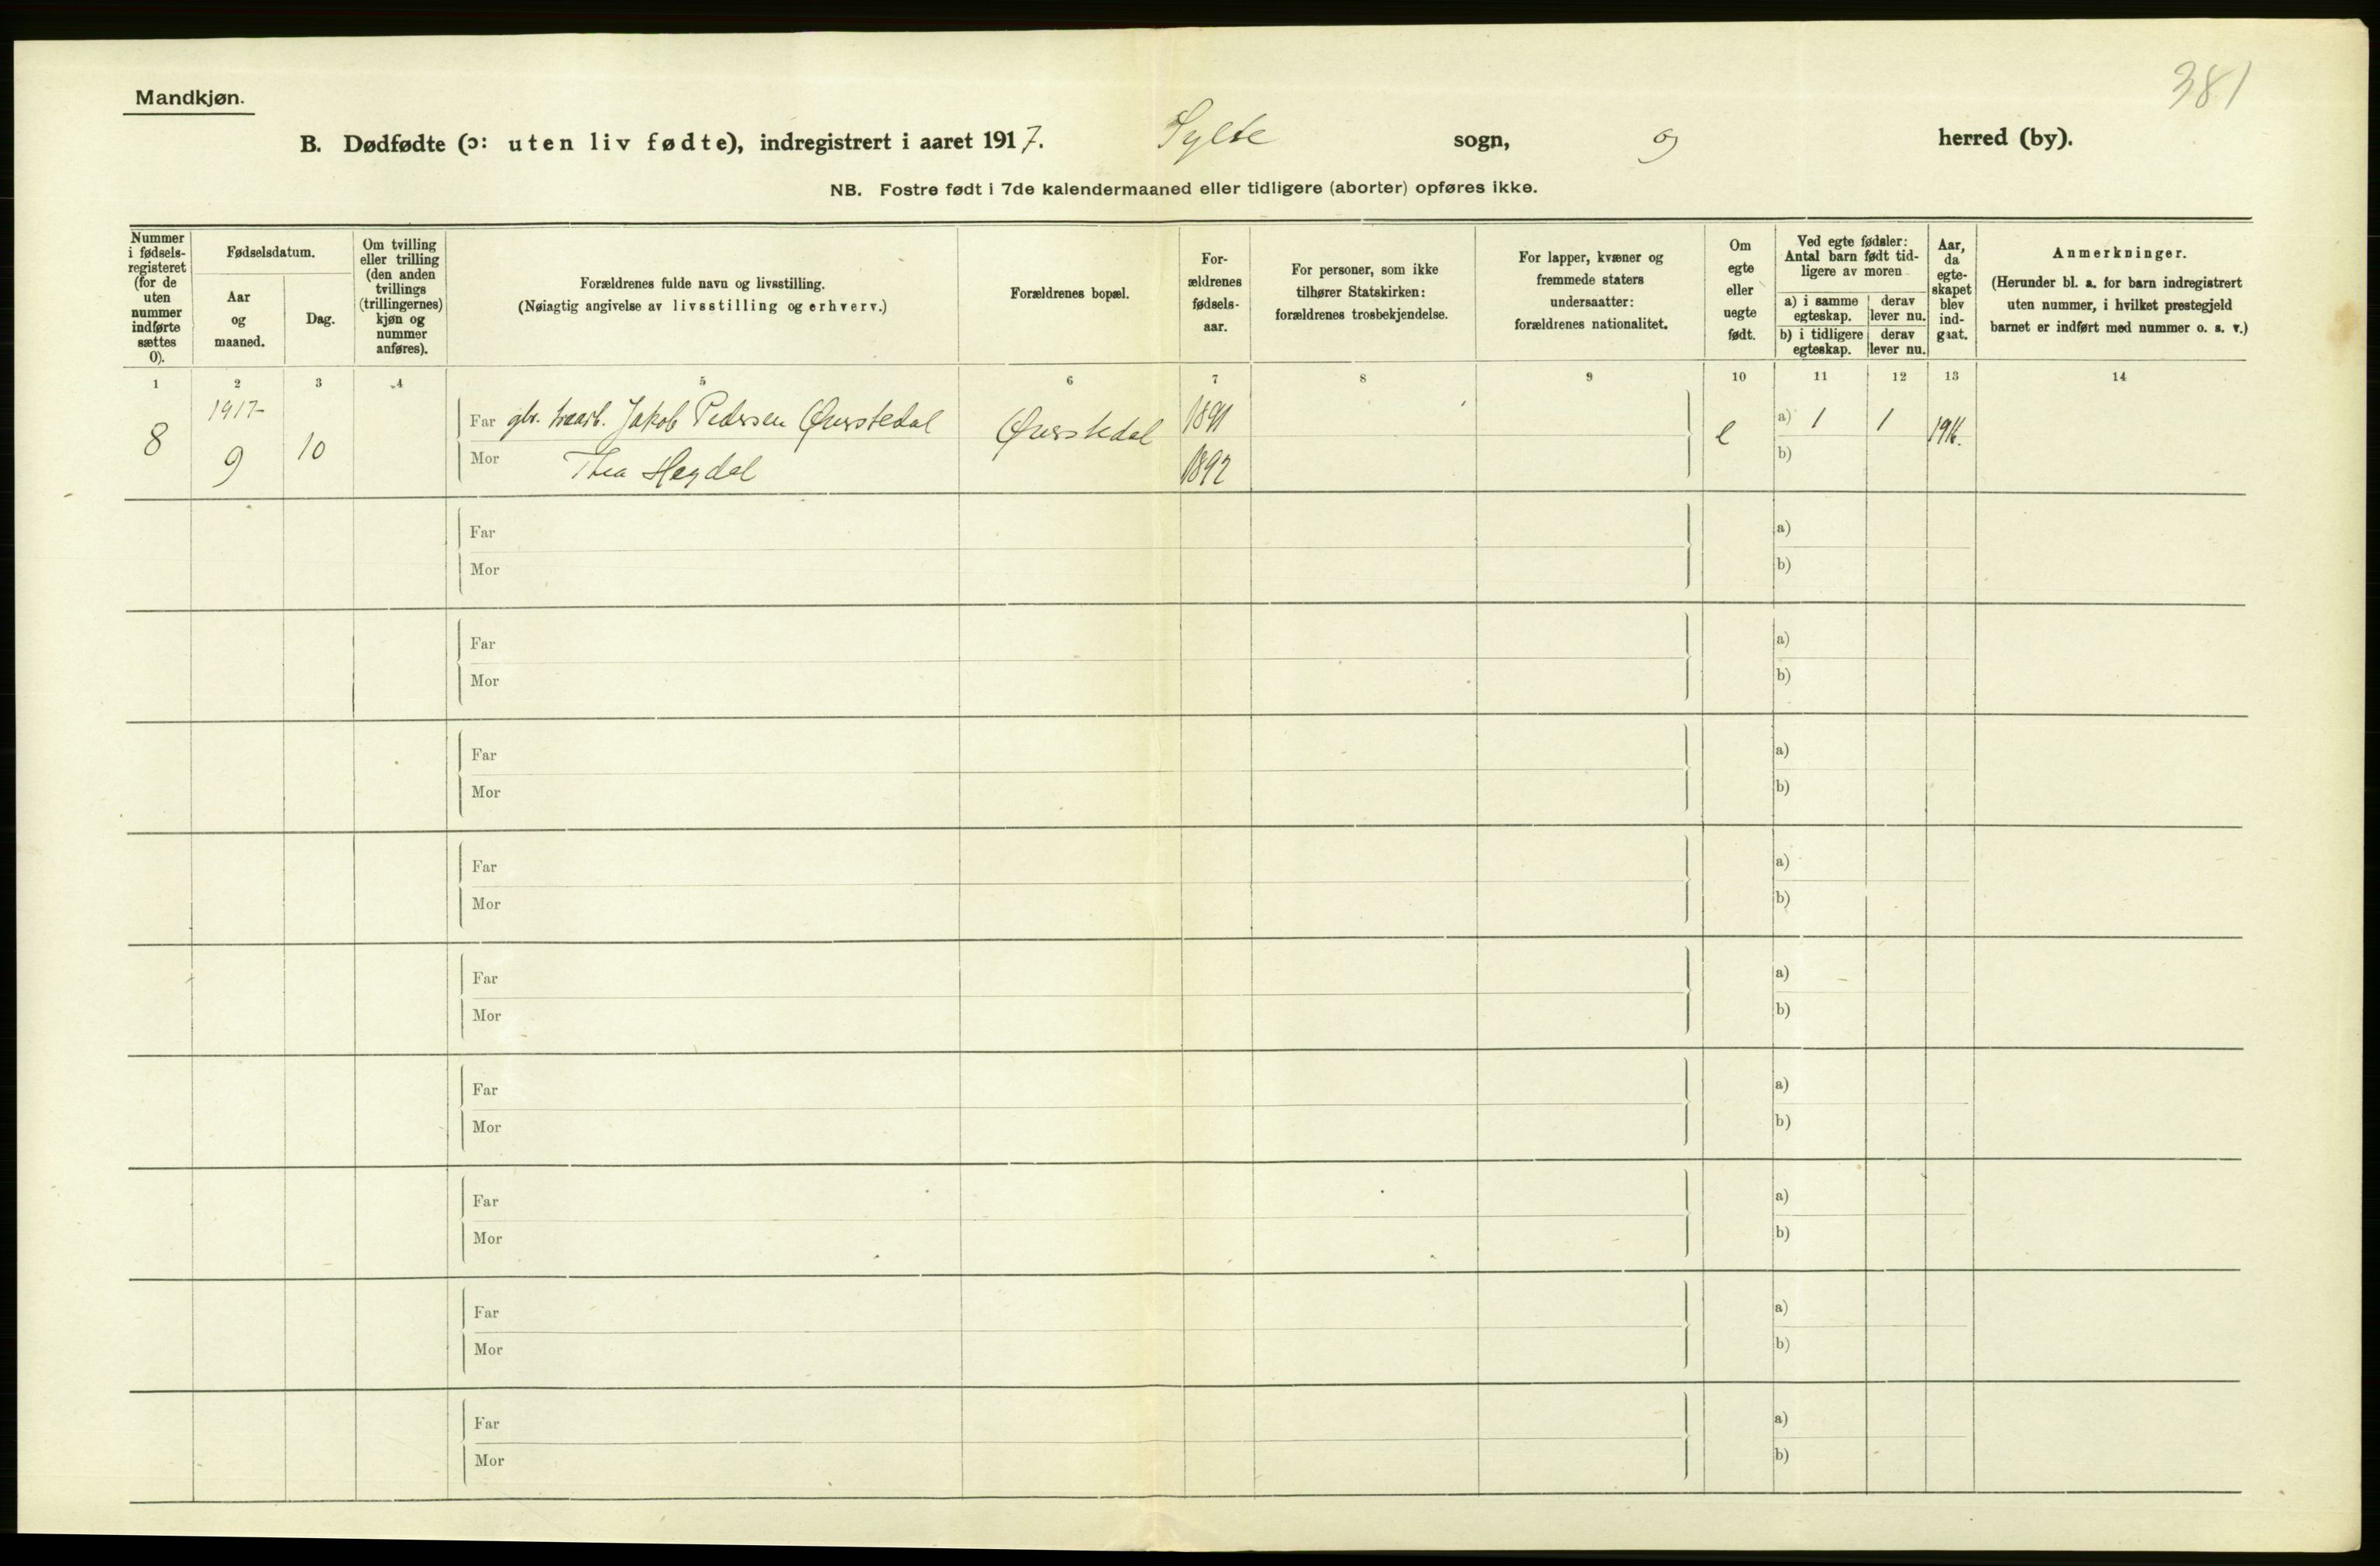 381
Mandkjøn.
B. Dødfødte (ɔ: uten liv fødte), indregistrert i aaret 1917. Sylte sogn, og herred (by).
NB. Fostre født i 7de kalendermaaned eller tidligere (aborter) opføres ikke.
Nummer i fødsels-registeret (for de uten nummer indførte sættes 0).
Fødselsdatum.
Aar og maaned.
Dag.
Om tvilling eller trilling (den anden tvillings (trillingernes) kjøn og nummer anføres).
Forældrenes fulde navn og livsstilling.
(Nøiagtig angivelse av livsstilling og erhverv.)
Forældrenes bopæl.
For-ældrenes fødsels-aar.
For personer, som ikke tilhører Statskirken: forældrenes trosbekjendelse.
For lapper, kvæner og fremmede staters undersaatter: forældrenes nationalitet.
Om egte eller uegte født.
Ved egte fødsler: Antal barn født tid-ligere av moren
a) i samme egteskap.
derav lever nu.
b) i tidligere egteskap.
derav lever nu.
Aar, da egte-skapet blev ind-gaat.
Anmerkninger.
(Herunder bl. a. for barn indregistrert uten nummer, i hvilket prestegjeld barnet er indført med nummer o. s. v.)
1 2 3 4 5 6 7 8 9 10 11 12 13 14
8 1917- 9 10 Far Jakob Pedersen Øverstedal Øverstedal 1891 e a) 1 1 1916.
Mor Thea Hagdal 1892 b)
Far a)
Mor b)
Far a)
Mor b)
Far a)
Mor b)
Far a)
Mor b)
Far a)
Mor b)
Far a)
Mor b)
Far a)
Mor b)
Far a)
Mor b)
Far a)
Mor b)